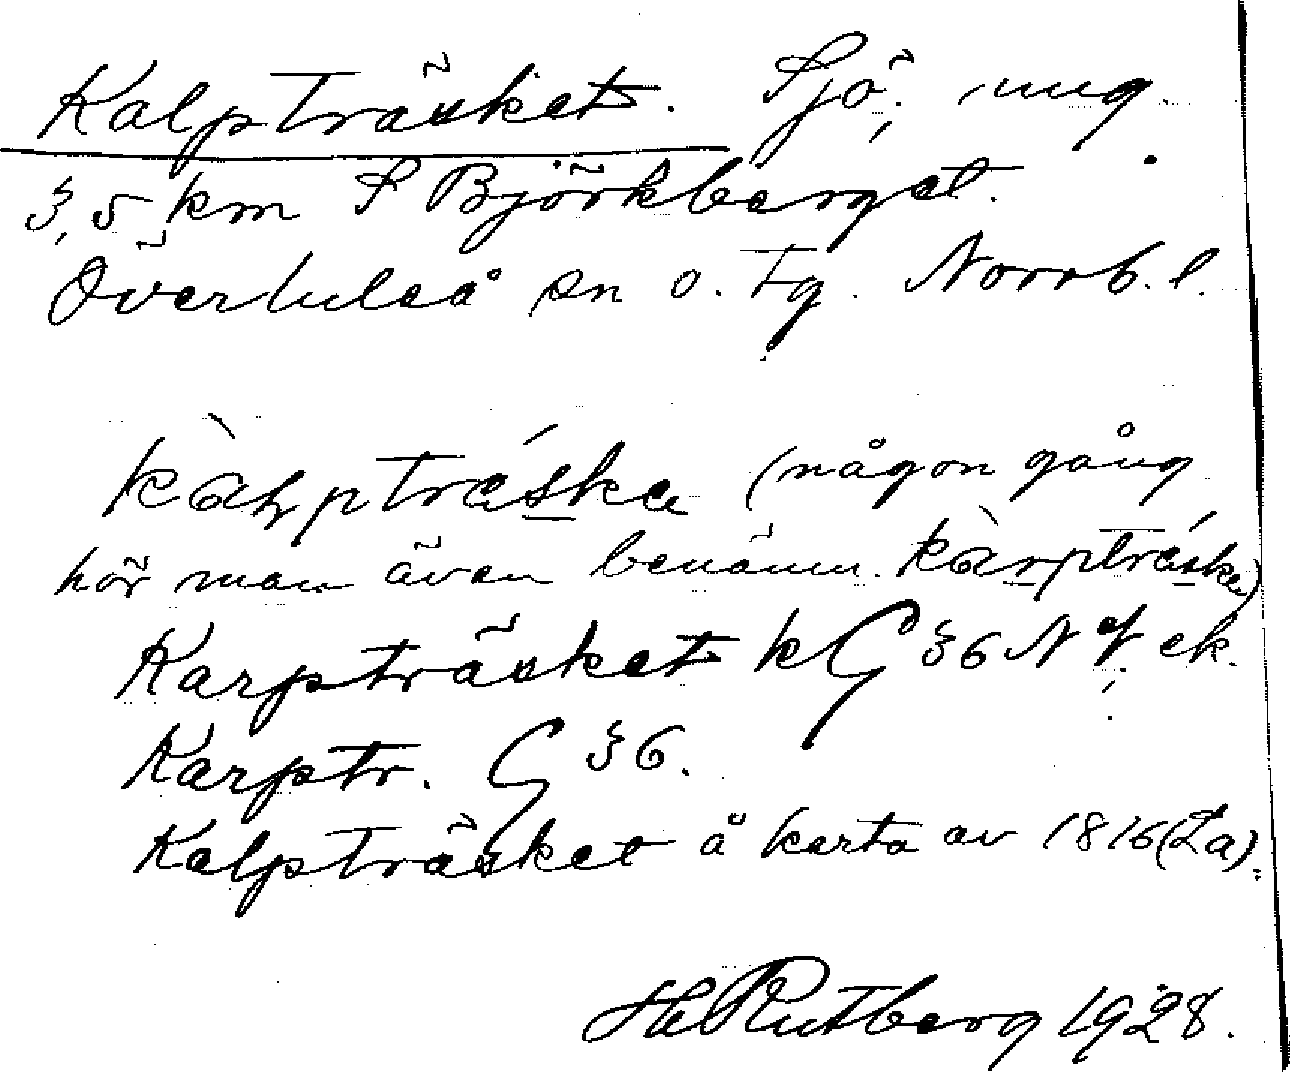 Kalpträsket. Sjö, ung.
3,5 km S Björkberget.
Överluleå sn o. tg. Norrb. l.
kàḷptrǻska (någon gång
hör man även benämn. kàrptráska)
Karpträsket kG 36 NV ek.
Karptr. G 36.
Kalpträsket å karta av 1816 (La).
He Rutberg 1928.